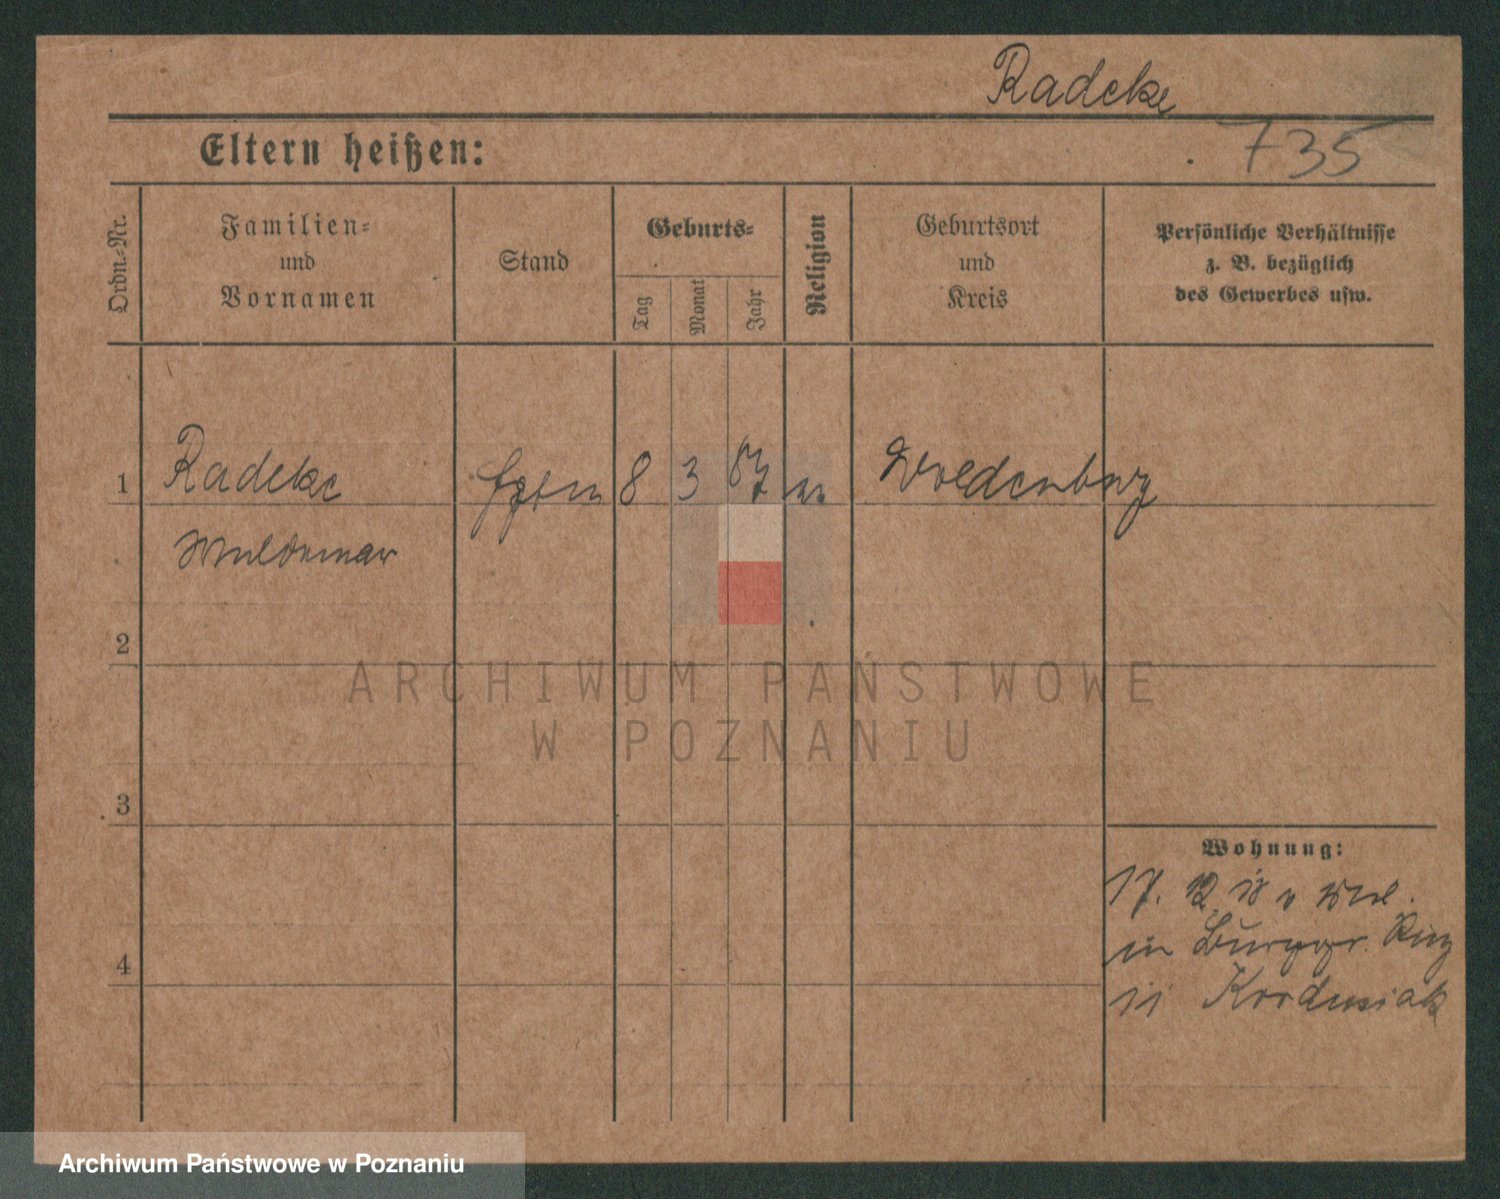 Radeke
735
Eltern heißen:
Ordn.-Nr.
Familien-
und
Vornamen
Stand
Geburts-
Tag
Monat
Jahr
Religion
Geburtsort
und
Kreis
Persönliche Verhältnisse
z. B. bezüglich
des Gewerbes usw.
1
Radeke
8
3
87
Woldenberg
Waldemar
2
ARCHIWUM PAŃSTWOWE
W POZNANIU
3
Wohnung:
17. 12.
in
4
Archiwum Państwowe w Poznaniu